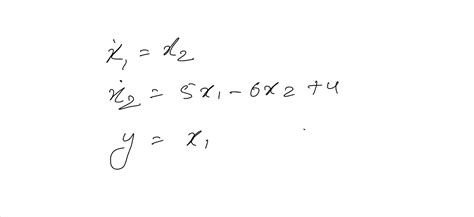 ẋ₁ = x₂
ẋ₂ = 5x₁ - 6x₂ + u
y = x₁